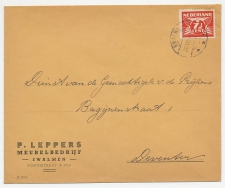 NEDERLAND
7½
Dienst van de Gemachtigde v. de Prijzen
Bagijnenstraat 1
Deventer
P. LEPPERS
MEUBELBEDRIJF
SWALMEN